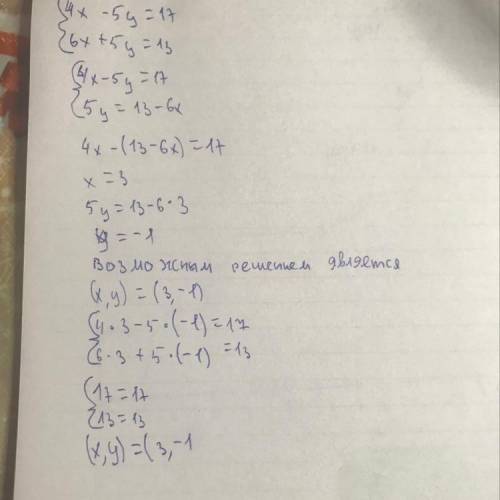 {4x - 5y = 17
{6x + 5y = 13
{4x - 5y = 17
{5y = 13 - 6x
4x - (13 - 6x) = 17
x = 3
5y = 13 - 6 · 3
y = -1
Возможным решением является
(x, y) = (3, -1)
{4 · 3 - 5 · (-1) = 17
{6 · 3 + 5 · (-1) = 13
{17 = 17
{13 = 13
(x, y) = (3, -1